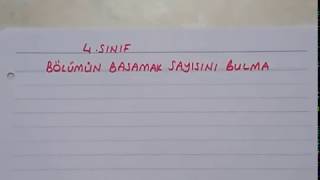 4.SINIF
BÖLÜMÜN BASAMAK SAYISINI BULMA